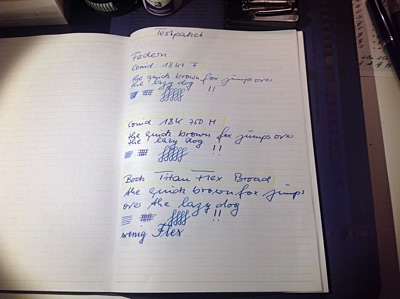 Testpaket
Federn
Conid 18kt F
the quick brown fox jumps over
the lazy dog
!!
Conid 18k 750 M
the quick brown fox jumps over
the lazy dog
!!
Bock Titan Flex Broad
the quick brown fox jumps
over the lazy dog
!!
wenig Flex